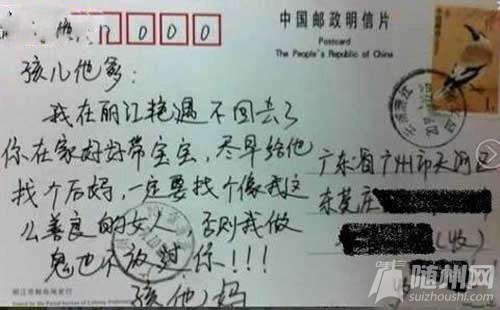 000
中国邮政明信片
Postcard
The People's Republic of China
孩儿他爹:
我在丽江艳遇不回去了
你在家好好带宝宝，尽早给他
找个后妈，一定要找个像我这
么善良的女人，否则我做
鬼也不放过你!!!
孩他妈
广东省广州市天河区
东莞庄
(收)
丽江市邮政局发行
随州网
suizhoushi.com